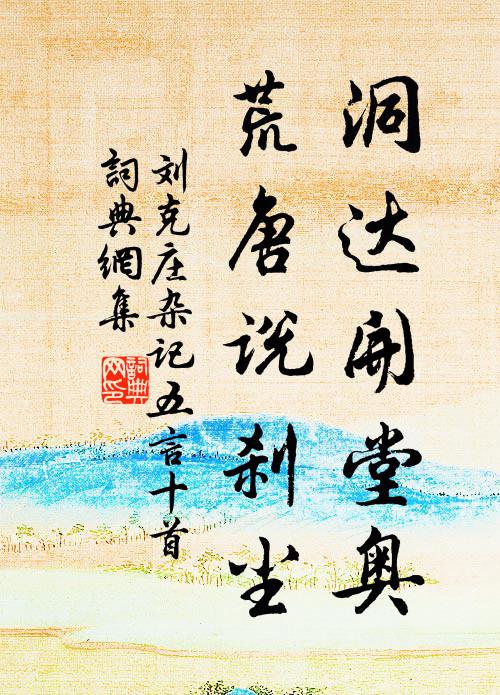 洞达开堂奥
荒唐说刹尘
刘克庄杂记五言十首
詞典網集
詞典网印